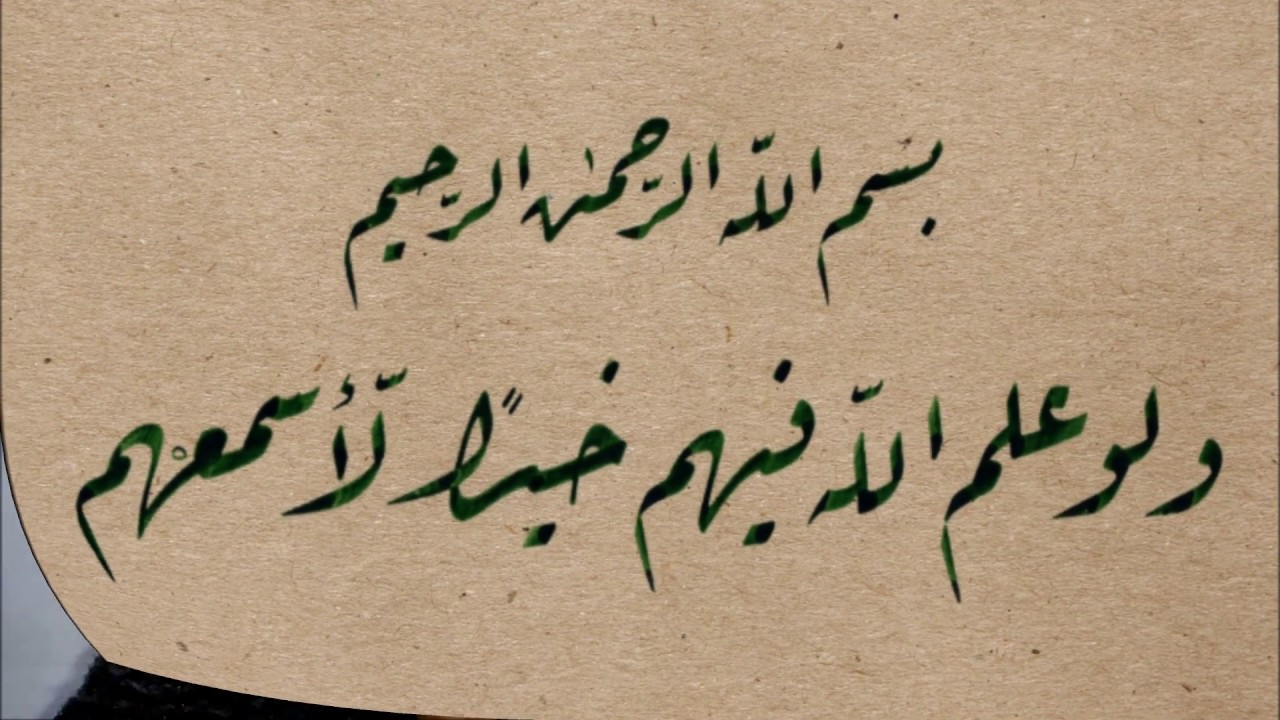 بسم اللّه الرّحمٰن الرّحيم
ولو علم اللّه فيهم خيرًا لّأسمعهم